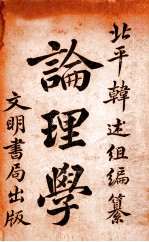 北平韓述組編纂
論理學
文明書局出版